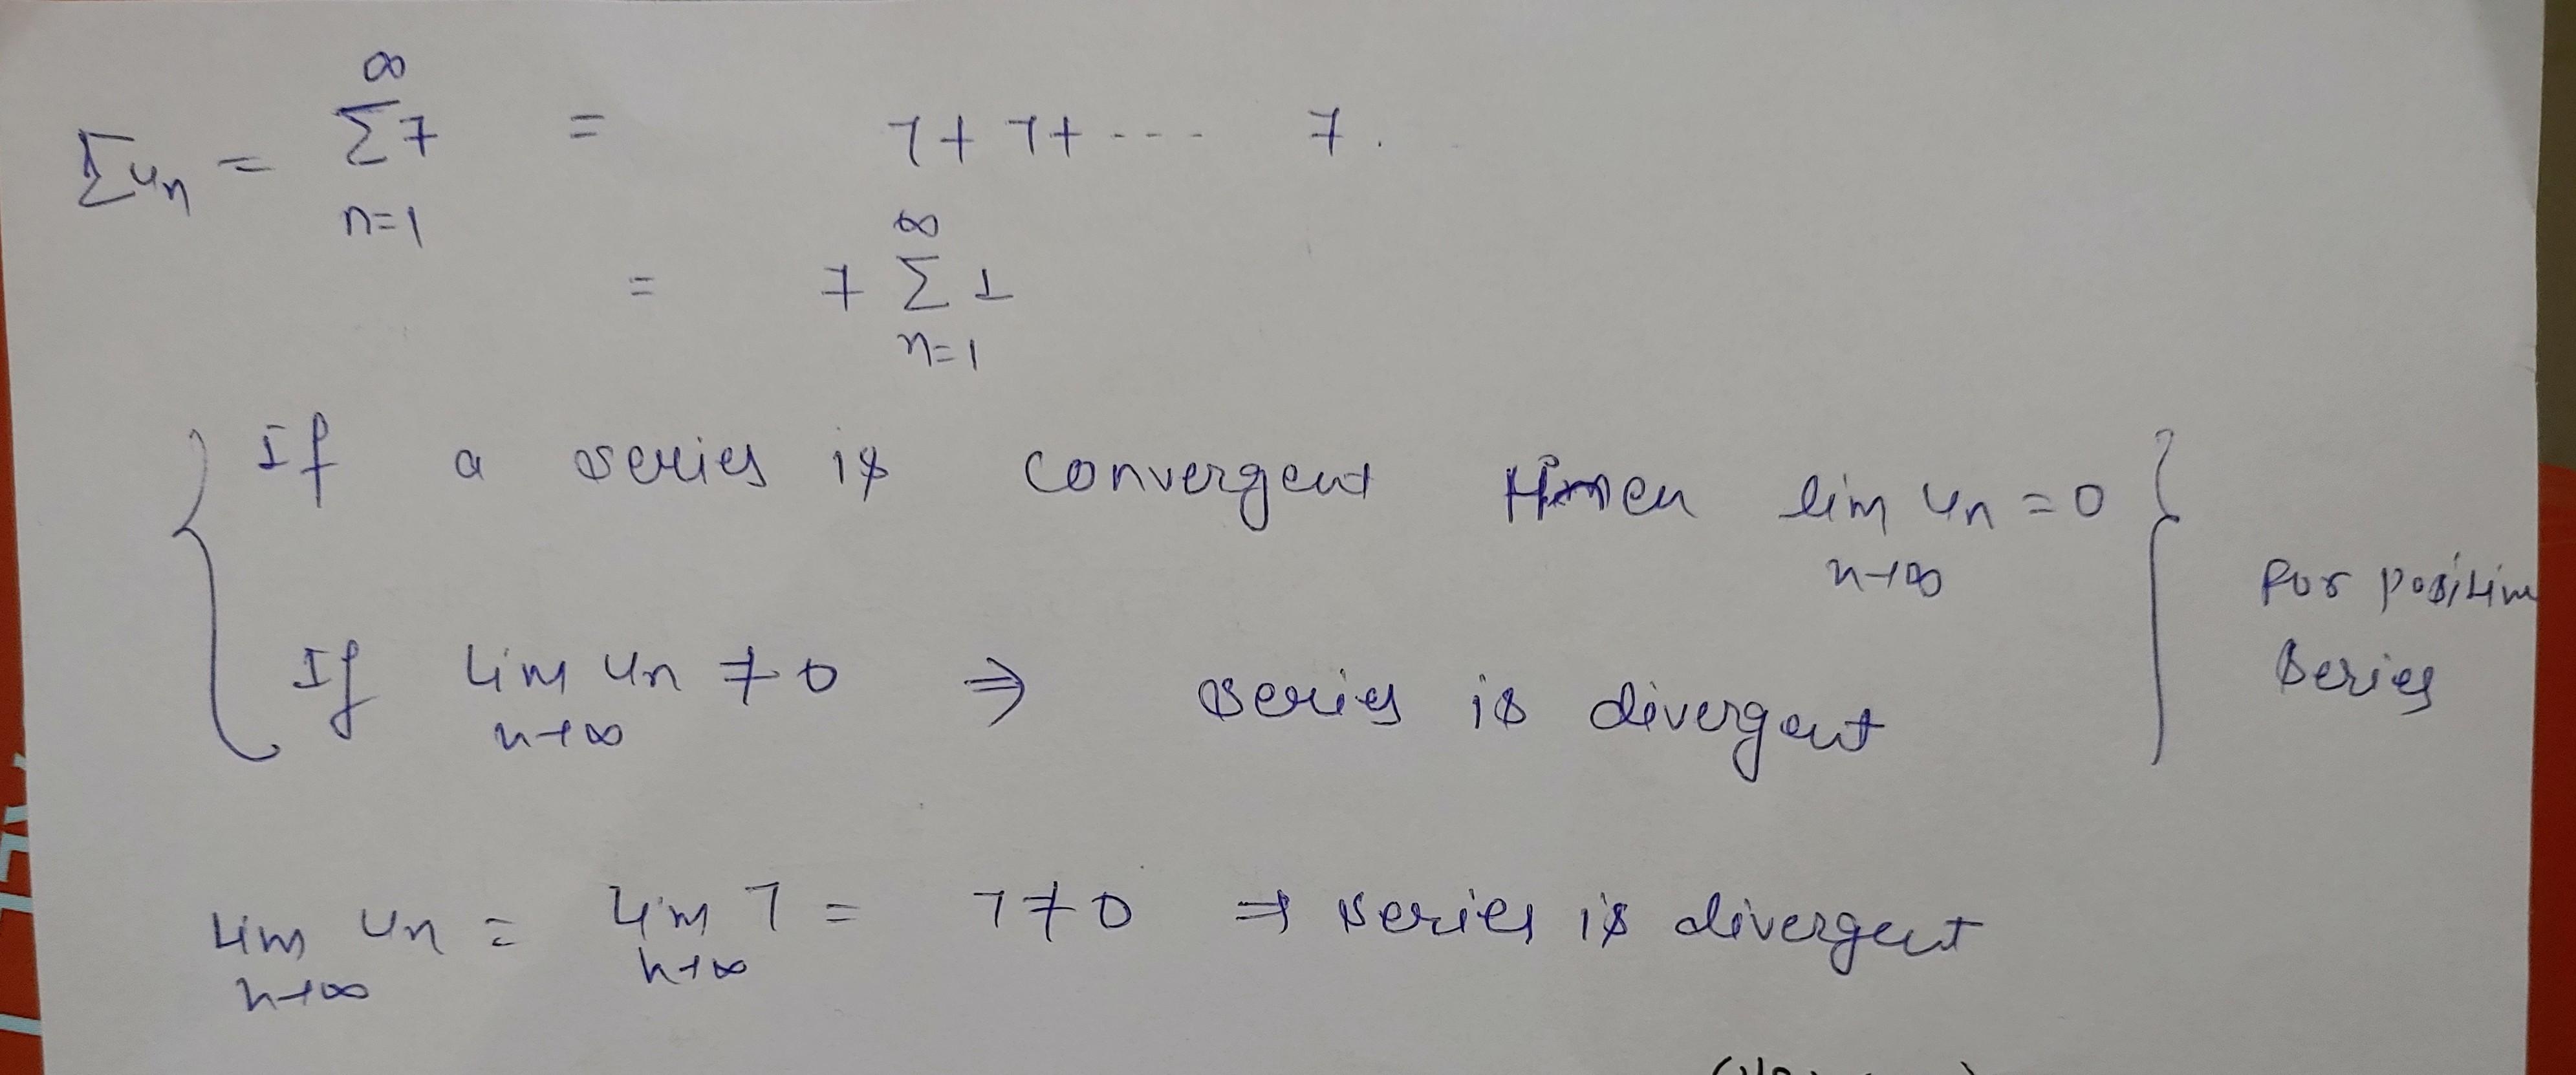 ∑uₙ = ∞∑n=1 7 = 7+7+--- 7.
= 7 ∞∑n=1 1
If a series is convergent then lim n→∞ uₙ = 0
If lim n→∞ uₙ ≠ 0 ⇒ series is divergent
For positive
series
lim n→∞ uₙ = lim n→∞ 7 = 7≠0 ⇒ series is divergent